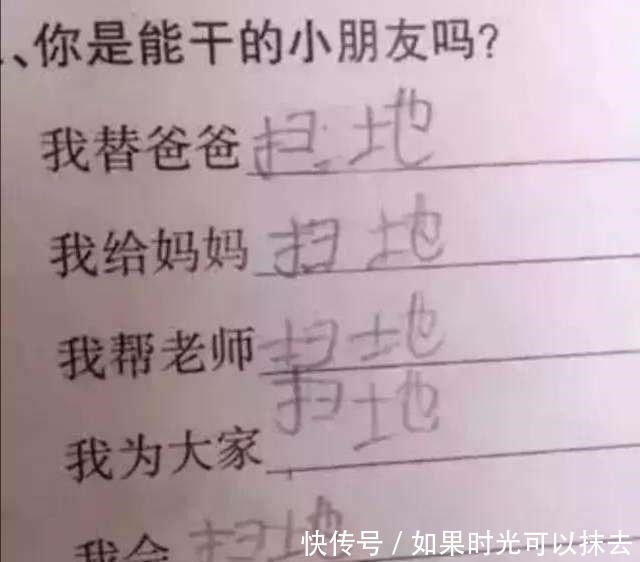 、你是能干的小朋友吗?
我替爸爸扫地
我给妈妈扫地
我帮老师扫地
我为大家扫地
我会扫地
快传号/如果时光可以抹去